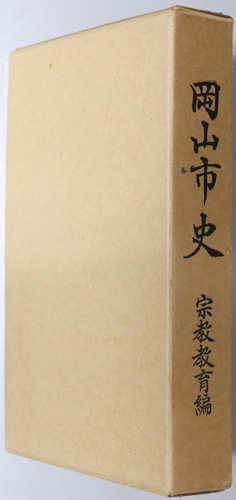 岡山市史
宗教教育編